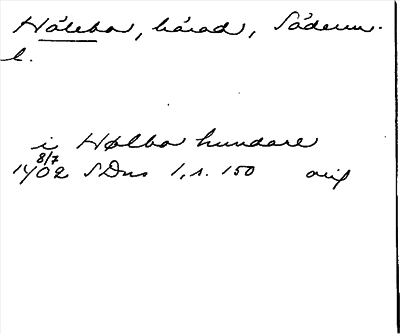 Hölebo, härad, Söderm.
l.
i Hølbo hundare
8/7
1402 SDns 1, s. 150 orig